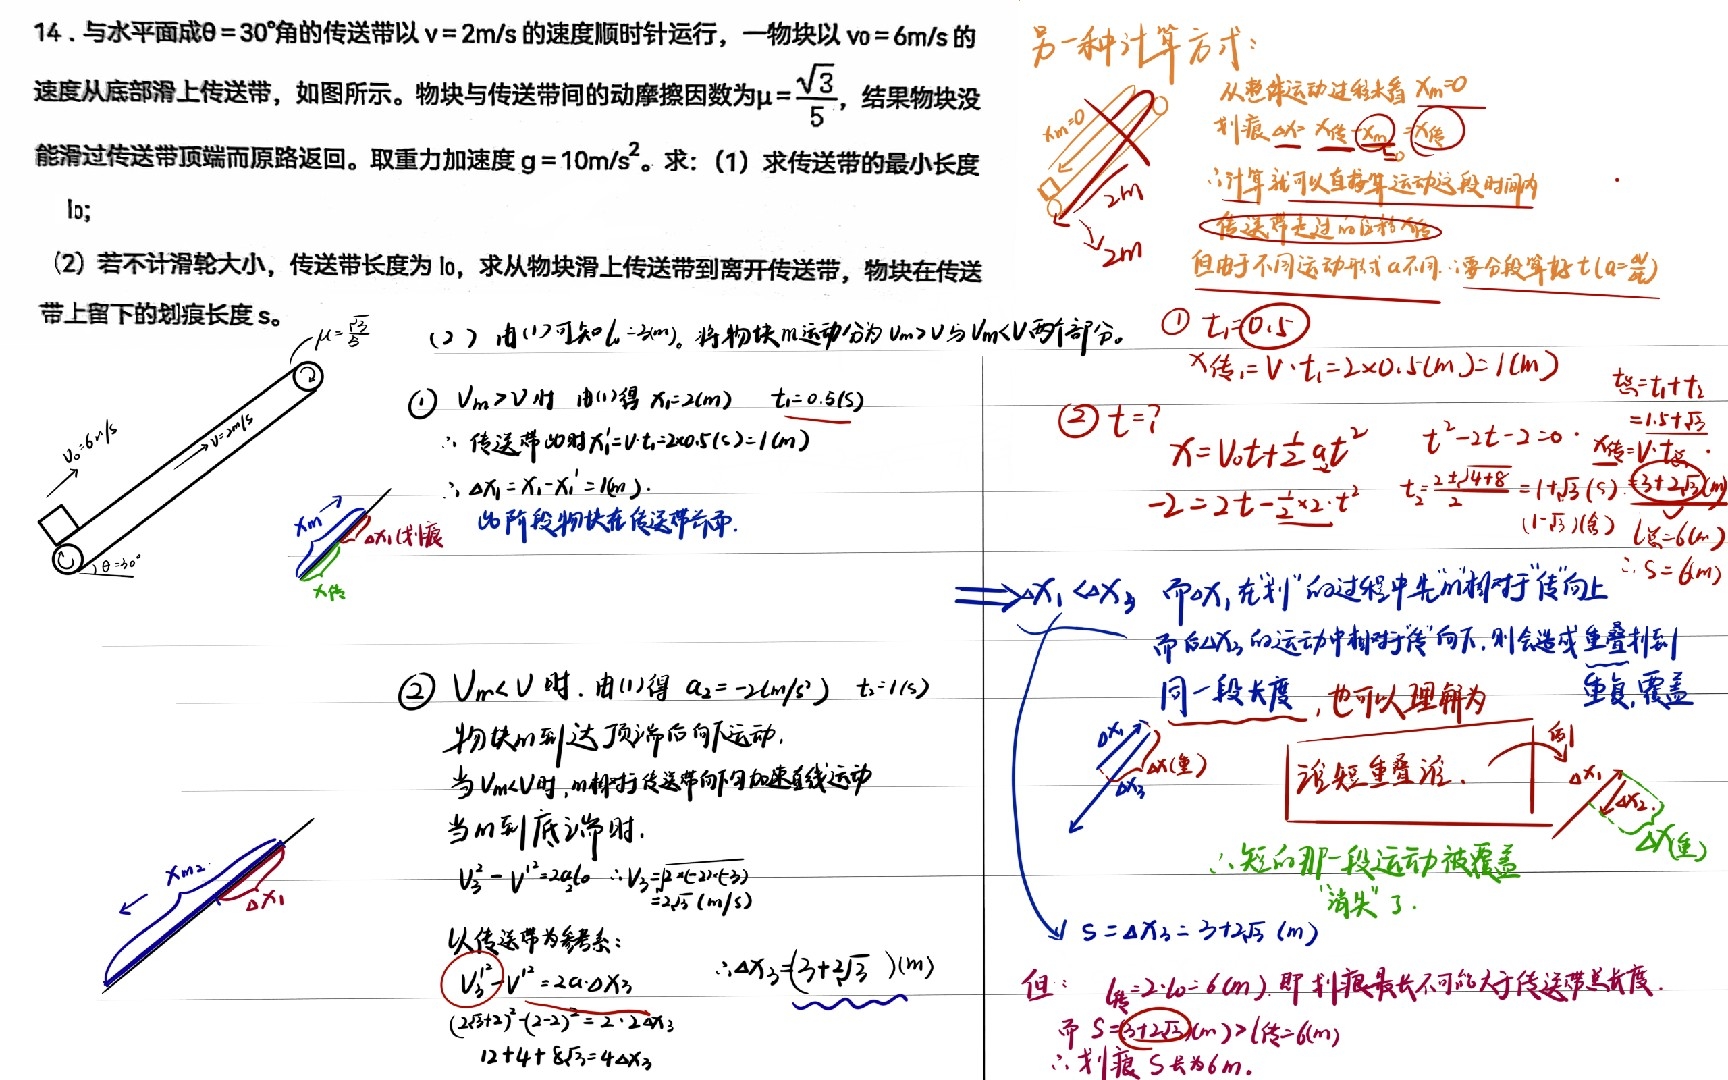 14．与水平面成θ＝30°角的传送带以 v＝2m/s 的速度顺时针运行，一物块以 v0＝6m/s 的
速度从底部滑上传送带，如图所示。物块与传送带间的动摩擦因数为μ＝√3/5，结果物块没
能滑过传送带顶端而原路返回。取重力加速度 g＝10m/s²。求：（1）求传送带的最小长度
l₀;
（2）若不计滑轮大小，传送带长度为 l₀，求从物块滑上传送带到离开传送带，物块在传送
带上留下的划痕长度 s。
μ=√3/5
V₀=6m/s
V=2m/s
θ=30°
(2) 由(1)可知l₀=3(m)。将物块m运动分为Vm>V与Vm<V两个部分。
① Vm>V时 由(1)得 x₁=2(m) t₁=0.5(s)
∴ 传送带此时x₁'=V·t₁=2×0.5(s)=1(m)
∴ Δx₁=x₁-x₁'=1(m).
此阶段物块在传送带前面.
xm
Δx₁(划痕
x传
② Vm<V时. 由(1)得 a₂=-2(m/s²) t₂=1(s)
物块m到达顶端后向下运动.
当Vm<V时,m相对于传送带向下匀加速直线运动
当m到底端时.
V₃²-V'²=2a₂l₀ ∴V₃=√2×(-2)×(-3)
=2√3(m/s)
以传送带为参考系:
V₃'²-V'²=2a·Δx₃
(2√3+2)²-(2-2)²=2·2Δx₃
12+4+8√3=4Δx₃
∴Δx₃=(3+2√3)(m)
xm₂
Δx₁
另一种计算方式:
从整体运动过程来看 xm=0
划痕Δx=x传-xm=x传
0
∴计算就可以直接算运动这段时间内
传送带走过的位移x传
但由于不同运动形式a不同∴要分段算好t(a=Δv/Δt)
xm=0
2m
2m
① t₁=0.5
x传₁=V·t₁=2×0.5(m)=1(m)
② t=?
x=V₀t+½at²
-2=2t-½×2·t²
t²-2t-2=0.
t₂=(2±√4+8)/2=1+√3(s)
(1-√3)(舍)
t总=t₁+t₂
=1.5+√3
x传=V·t总.
=3+2√3(m)
l总=6(m)
∴S=6(m)
⇒Δx₁<Δx₃ 而Δx₁在“划”的过程中先“m”相对于“传”向上
而后Δx₃的运动中相对于“传”向下,则会造成重叠划到
同一段长度,也可以理解为
重复,覆盖
Δx₁
Δx(重)
Δx₃
谁短重叠谁.
例
Δx₁
Δx₂
Δx(重)
∴短的那一段运动被覆盖
“消失”了.
S=Δx₃=3+2√3(m)
但: l传=2·l₀=6(m).即划痕最长不可能大于传送带总长度.
而 S=(3+2√3)(m)>l传=6(m)
∴划痕S长为6m.